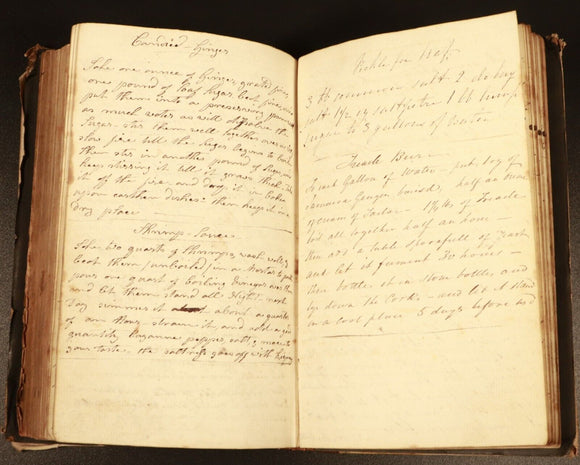 Candied Ginger
Take one ounce of Ginger grated fine,
one pound of loaf sugar beat fine
put them into a preserving pan with
as much water as will dissolve the
sugar. stir them well together over a
slow fire till the sugar begins to boil
then stir in another pound of sugar, and
keep stirring it till it grows thick, take
it off the fire, and drop it in Cakes
upon earthen dishes: then keep it in a
dry place
Shrimp Sauce
Take two quarts of Shrimps, wash well &
beat them (unboiled) in a Mortar &
pour one quart of boiling Vinegar over them
and let them stand all Night. next
day simmer it about a quarter
of an Hour, strain it, and add a
quantity Kayanne pepper, salt, & mace to
your taste. the saltness goes off with
Pickle for Beef
3 lb common salt 2 do bay
salt 1½ oz saltpetre 1 lb
sugar to 3 gallons of water
Treacle Beer
To each Gallon of Water put
Jamaica Ginger bruised, half an ounce
of Cream of Tartar. of Treacle
boil all together half an hour
then add a table spoonfull of Yeast
and let it ferment 30 hours
then bottle it in stone bottles, and
tye down the Corks and let it stand
in a cool place 5 days before